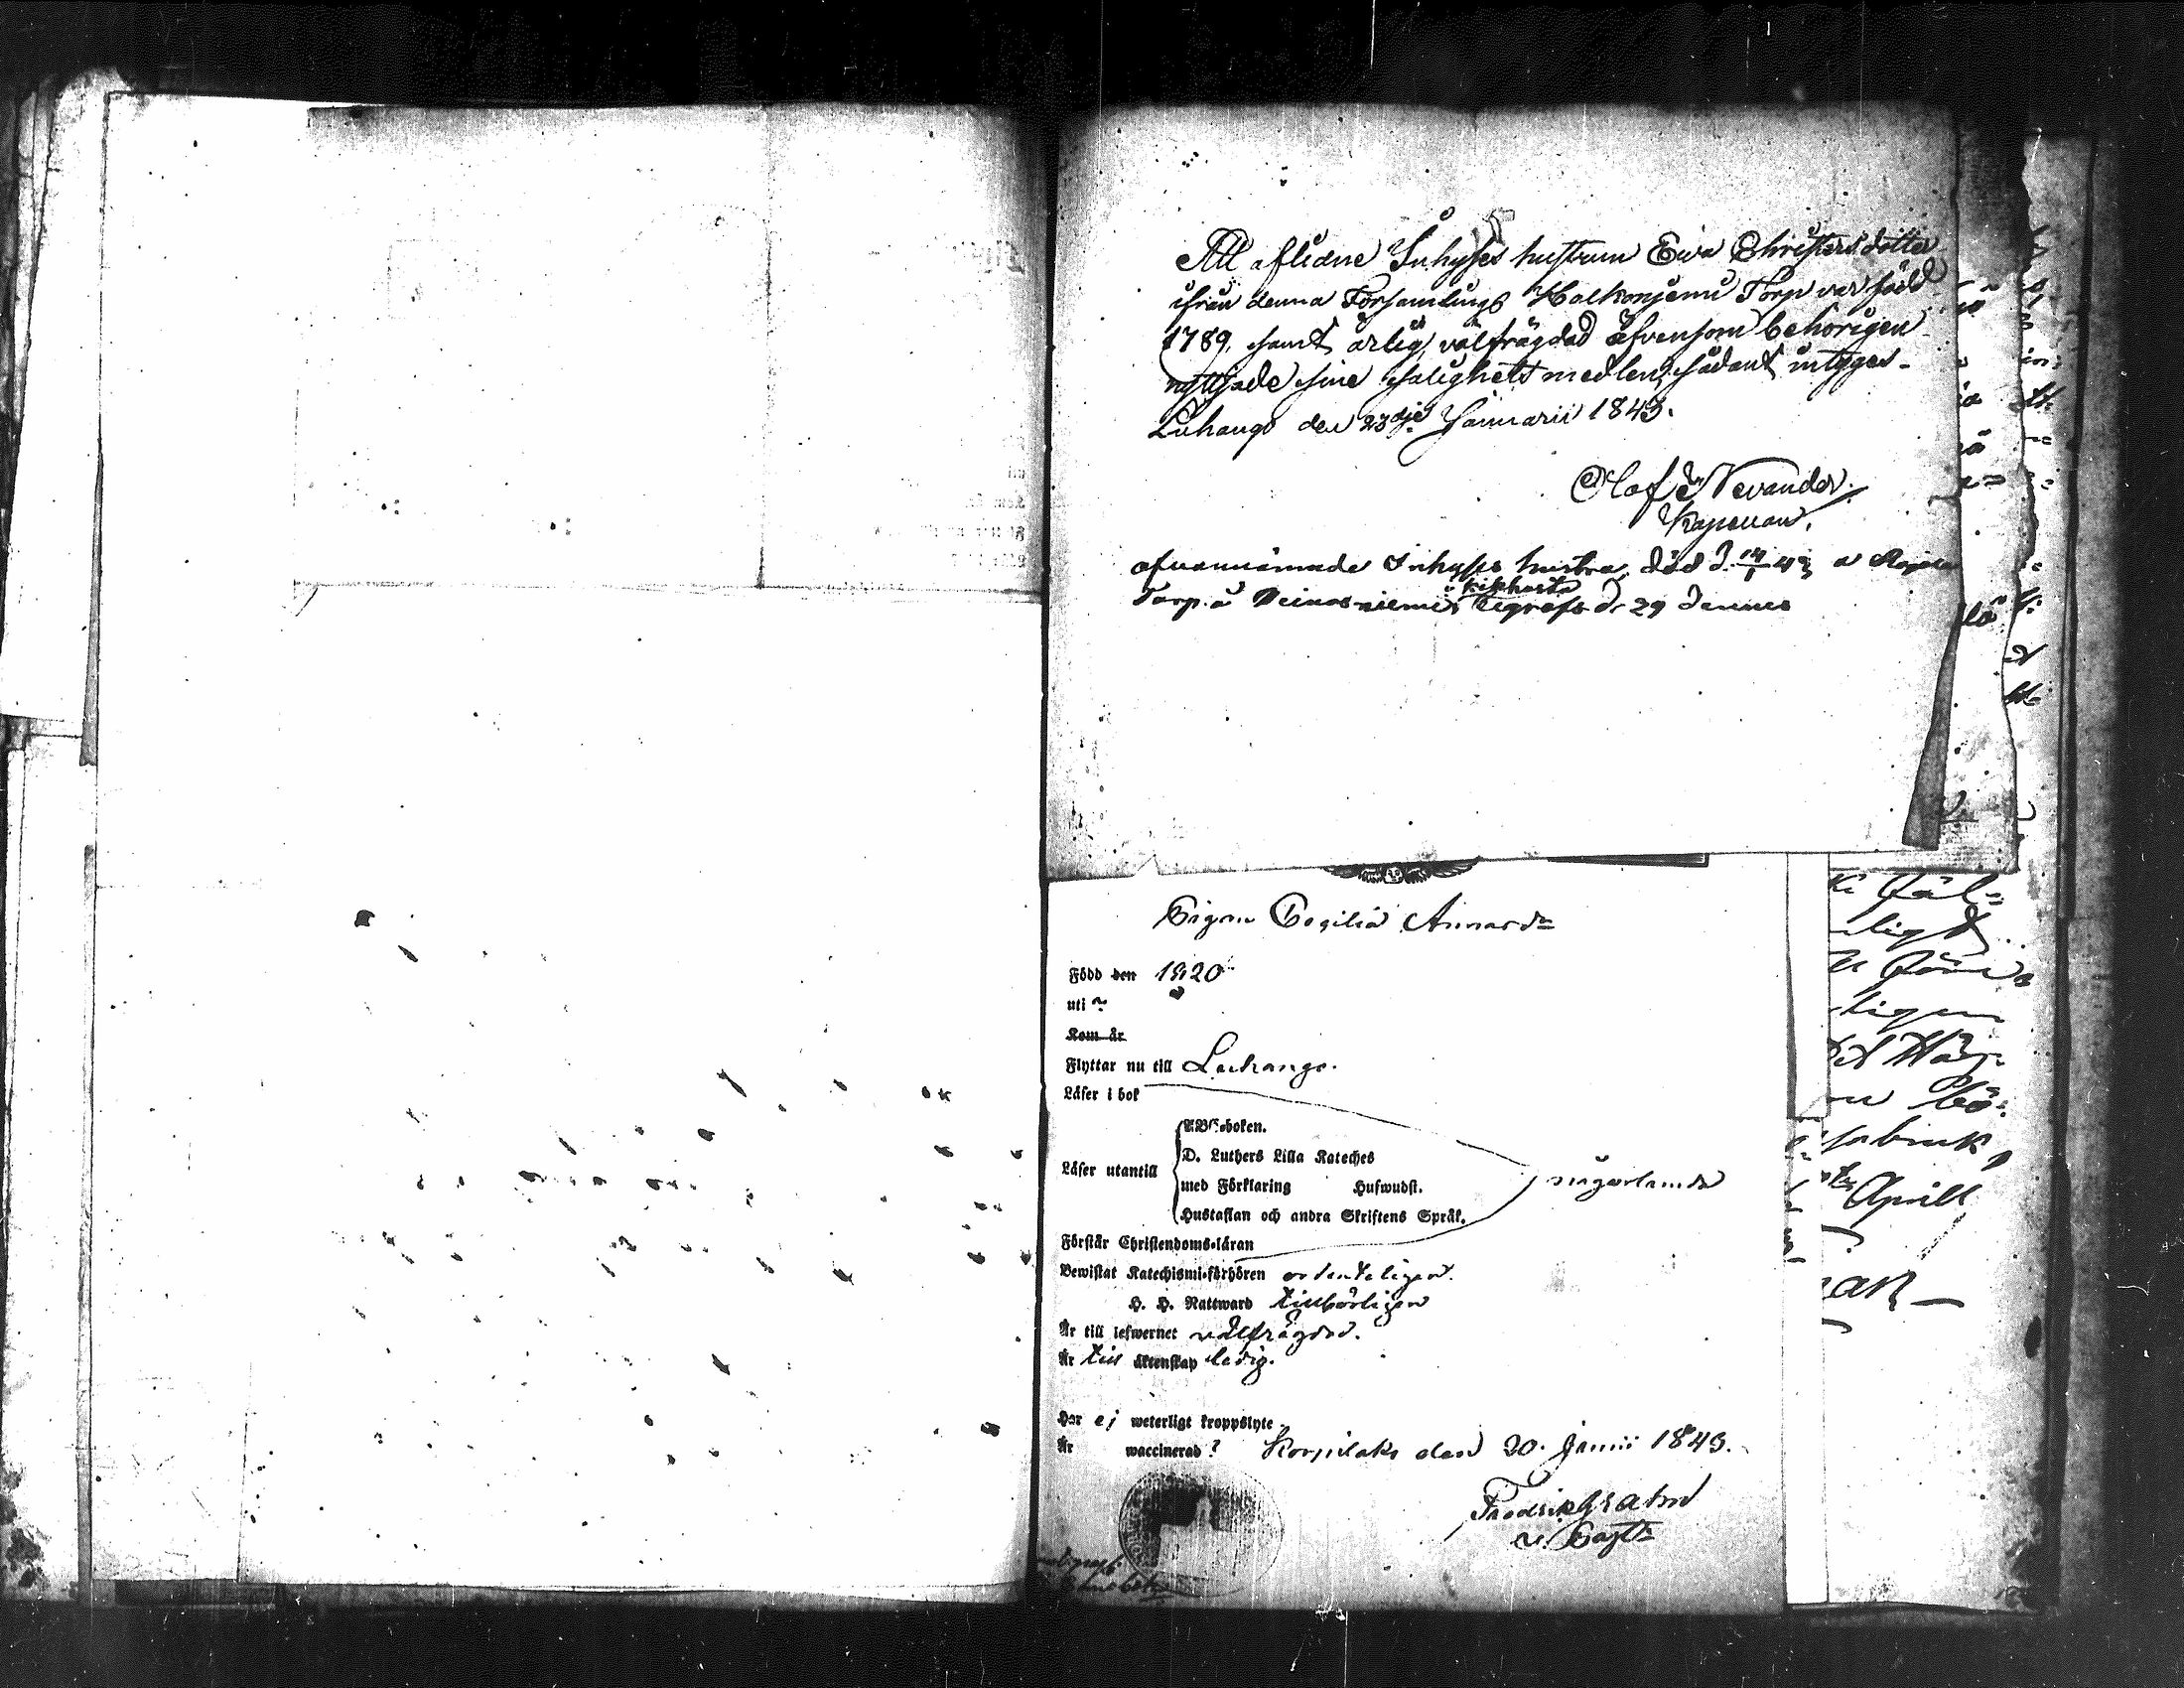 Att aflidne Inhyses hustrun Ewa Christersdotter
ifrån denna Församlings Torp var född
1789, samt ärlig, välfrägdad äfvensom behörigen
nyttjade sine salighets medlen, sådant intygas.
Luhango den 23dje Januarii 1843.
Olof Nevander.
Kapellan.
ofvannämnde Inhyses hustru död d. 14/1 43 a
Torp. å kikhosta begrofs d. 29 dennes
Pigan Cecilia Annasdr
Född den 1820
uti
Kom år
Flyttar nu till Luhango.
Läser i bok
ABC-boken.
D. Luthers Lilla Kateches
Läser utantill
med Förklaring Hufwudst.
någorlunda
Hustaflan och andra Skriftens Språk.
Förstår Christendoms-läran
Bewistat Katechismi-förhören ordenteligen.
H. H. Nattward tillbörligen
Är till lefwernet välfrägdad.
Är till äktenskap ledig.
Har ej weterligt kroppslyte
Är waccinerad? Korpilaks den 20. Junii 1843.
Fredrik Grahn
v. Past:
Aprill